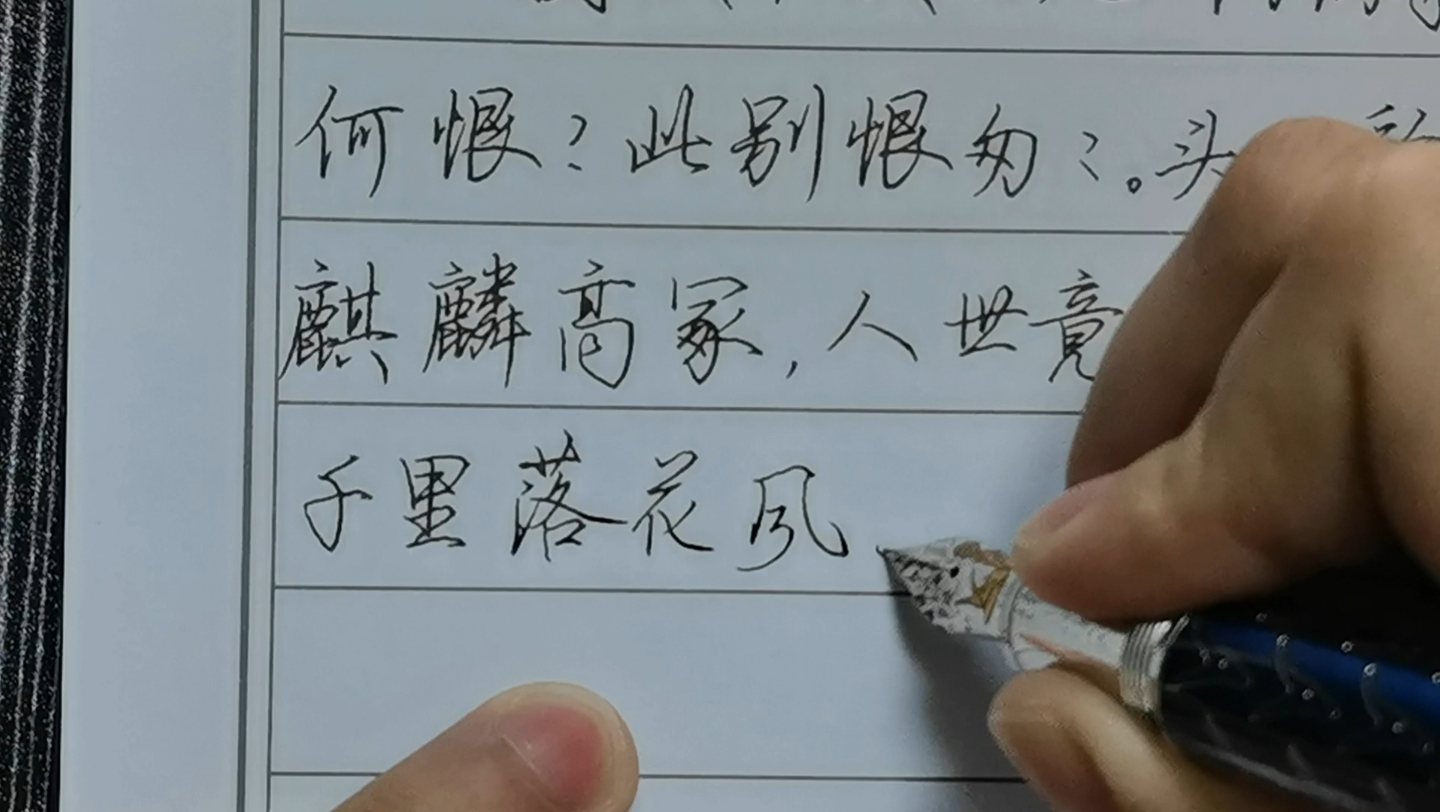 何恨？此别恨匆匆。头
麒麟高冢，人世竟
千里落花风